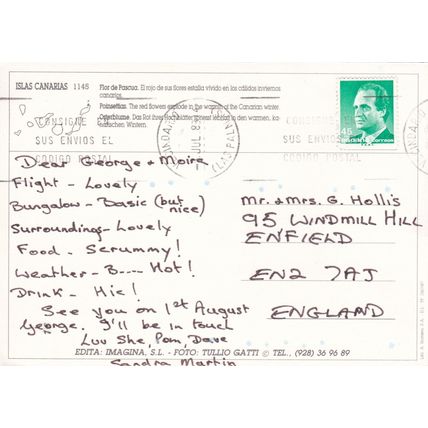 ISLAS CANARIAS 1145
Flor de Pascua. El rojo de sus flores estalla vivido en los cálidos inviernos
canarios.
Poinsettias. The red flowers explode in the warmth of the Canarian winter.
Osterblume. Das Rot ihrer
leblich in den warmen, ka-
narischen Wintern.
CONSIGNE EN
SUS ENVIOS EL
CODIGO POSTAL
JUL 8
CONSIGNE
SUS ENVIOS EL
CODIGO POSTAL
45
correos
Dear George + Moira
Flight - Lovely
Bungalow - Basic (but nice)
Surroundings - Lovely
Food - Scrummy!
Weather - B---- Hot!
Drink - Hic!
See you on 1st August
George. I'll be in touch
Luv She, Pam, Dave
Sandra Martin
Mr. & Mrs. G. Hollis
95 WINDMILL HILL
ENFIELD
EN2 7AJ
ENGLAND
EDITA: IMAGINA, S.L. - FOTO: TULLIO GATTI © TEL., (928) 36 96 89